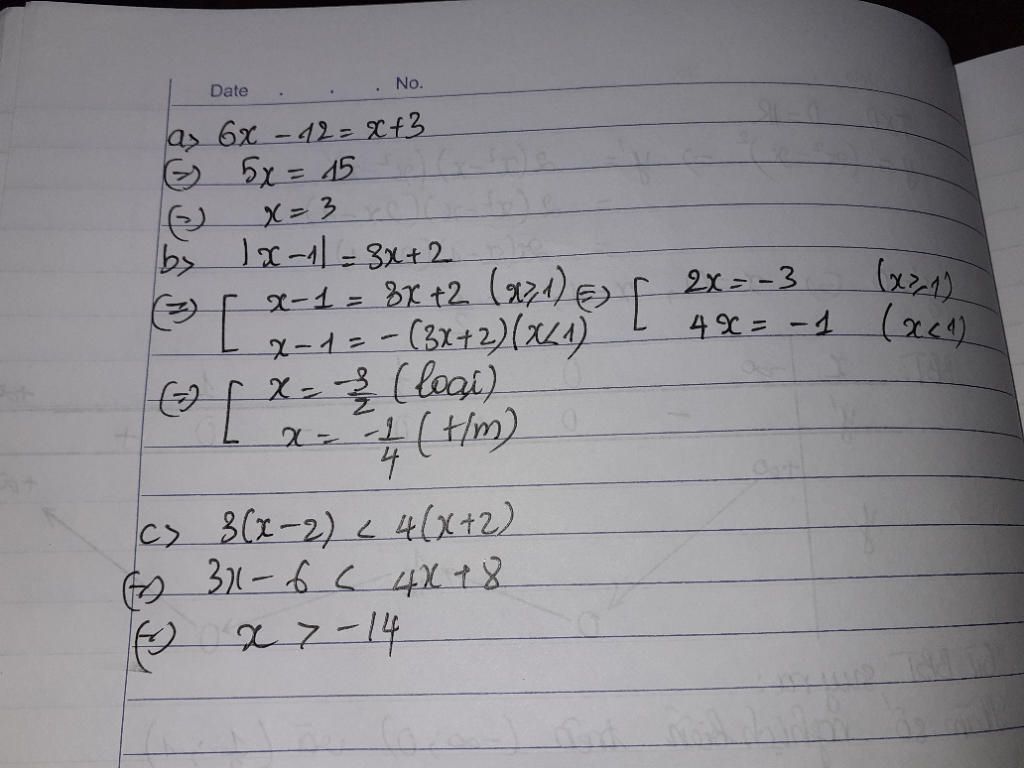 Date . . . No.
a> 6x - 12 = x + 3
(=) 5x = 15
(=) x = 3
b> |x - 1| = 3x + 2
(=) [ x - 1 = 3x + 2 (x ⩾ 1) (=) [ 2x = -3 (x ⩾ 1)
x - 1 = -(3x + 2) (x < 1) 4x = -1 (x < 1)
(=) [ x = -3/2 (loại)
x = -1/4 (t/m)
c> 3(x - 2) < 4(x + 2)
(=) 3x - 6 < 4x + 8
(=) x > -14